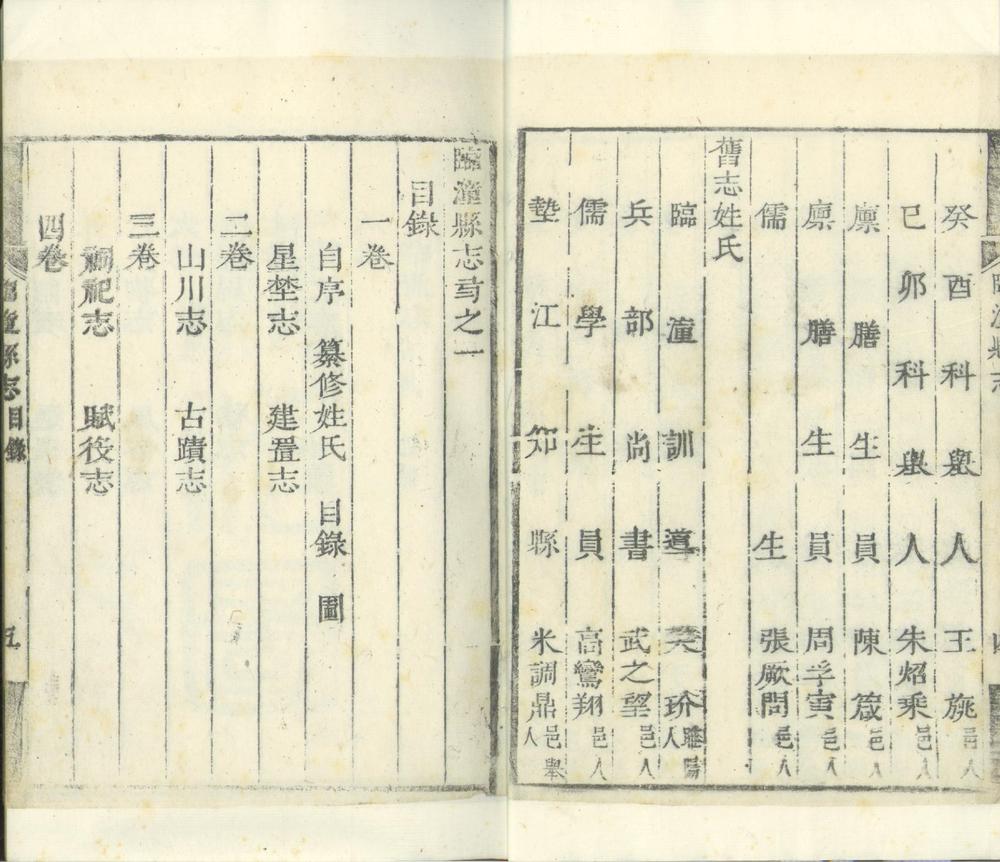 癸酉科舉人王旐邑人
己卯科舉人朱炤乘邑人
廩膳生員陳箴邑人
廩膳生員周孚寅邑人
儒生張厥問邑人
舊志姓氏
臨潼訓導
兵部尚書武之望邑人
儒學生員高鸞翔邑人
墊江知縣米調鼎邑舉人
臨潼縣志
臨潼縣志
目錄
一卷
自序 纂修姓氏 目錄 圖
星埜志 建置志
二卷
山川志 古蹟志
三卷
祠祀志 賦役志
四卷
臨潼縣志 目錄 五